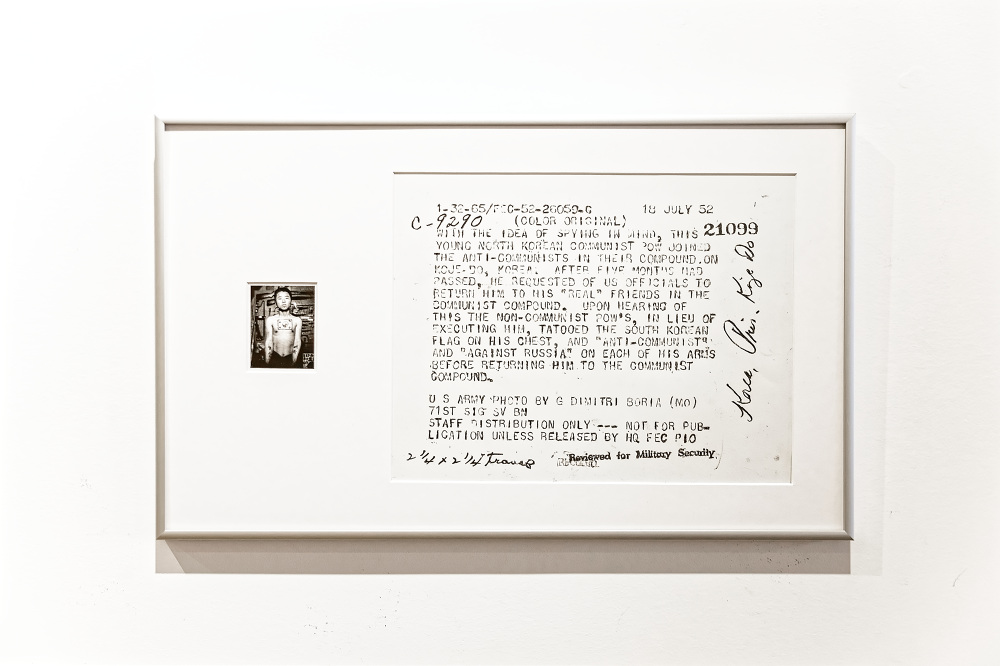 1-32-65/FEC-52-26059-G 18 JULY 52
C-9290 (COLOR ORIGINAL)
21099
WITH THE IDEA OF SPYING IN MIND, THIS
YOUNG NORTH KOREAN COMMUNIST POW JOINED
THE ANTI-COMMUNISTS IN THEIR COMPOUND.ON
KOJE-DO, KOREA. AFTER FIVE MONTHS HAD
PASSED, HE REQUESTED OF US OFFICIALS TO
RETURN HIM TO HIS "REAL" FRIENDS IN THE
COMMUNIST COMPOUND. UPON HEARING OF
THIS THE NON-COMMUNIST POW'S, IN LIEU OF
EXECUTING HIM, TATOOED THE SOUTH KOREAN
FLAG ON HIS CHEST, AND "ANTI-COMMUNIST"
AND "AGAINST RUSSIA" ON EACH OF HIS ARMS
BEFORE RETURNING HIM TO THE COMMUNIST
COMPOUND.
U S ARMY PHOTO BY G DIMITRI BORIA (MO)
71ST SIG SV BN
STAFF DISTRIBUTION ONLY --- NOT FOR PUB-
LICATION UNLESS RELEASED BY HQ FEC PIO
2 1/4 x 2 1/4 transp
Reviewed for Military Security
Korea, Pris. Koje Do